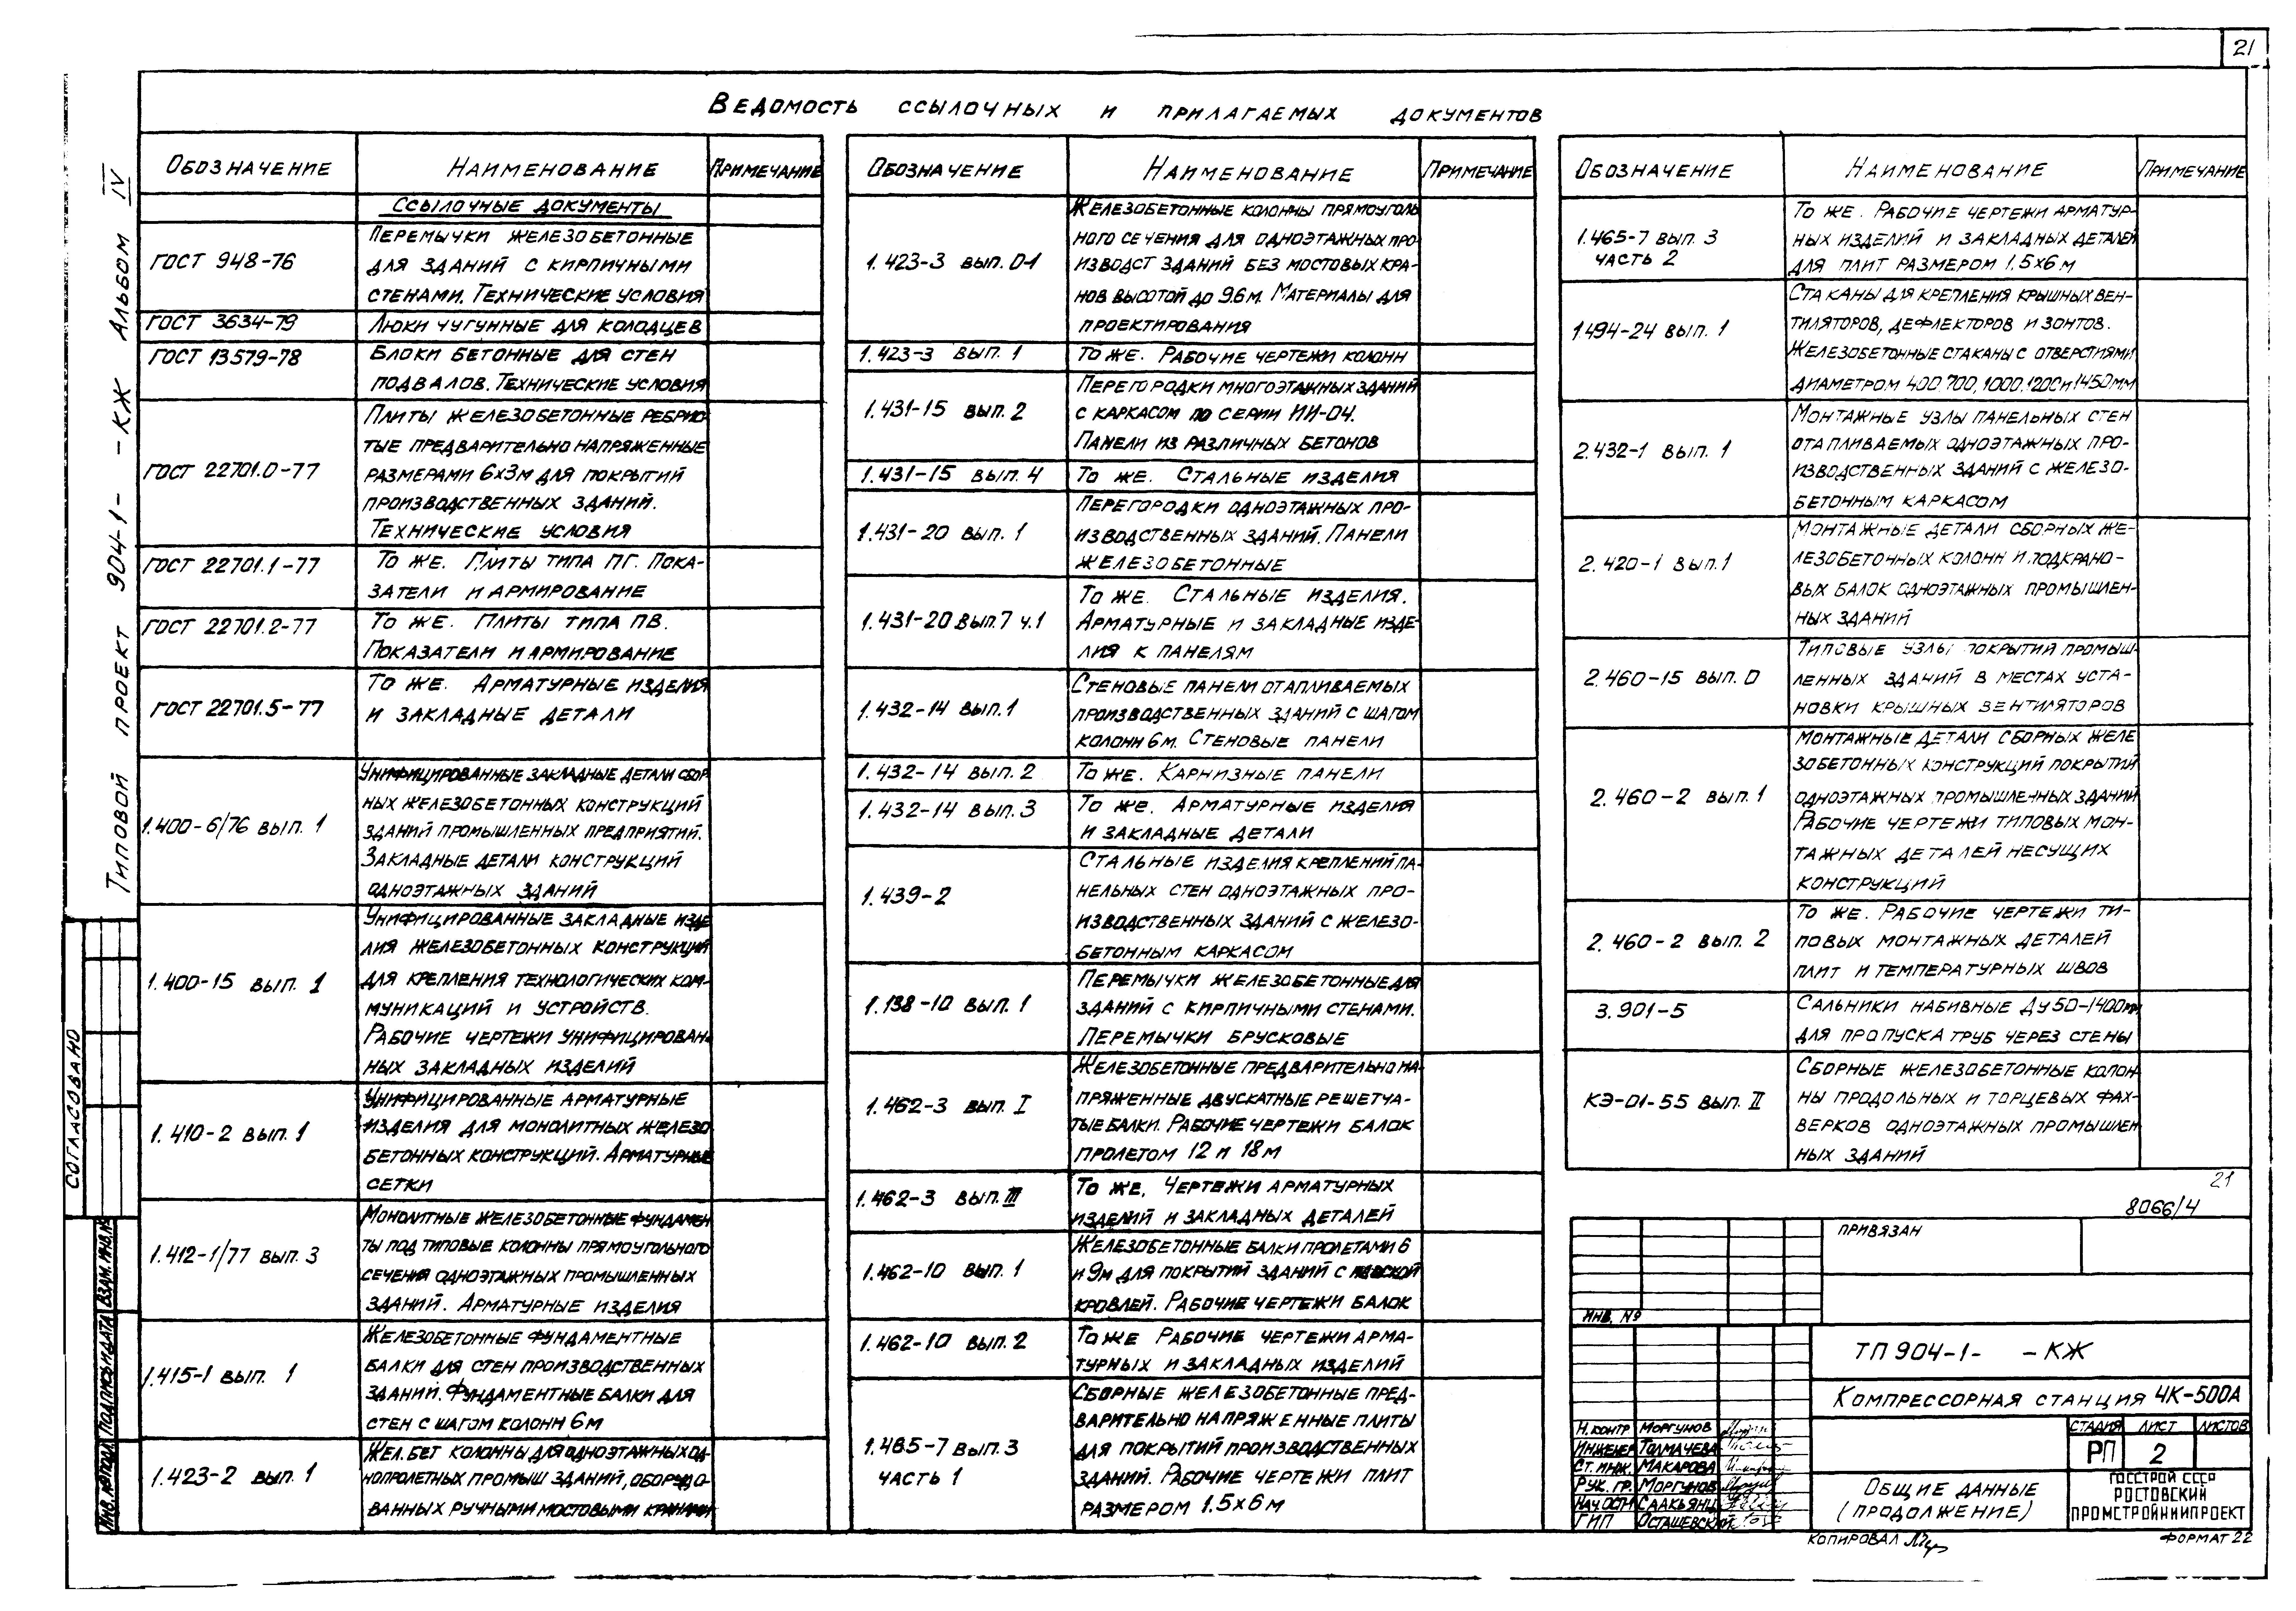 21
Ведомость ссылочных и прилагаемых документов
Типовой проект 904-1- -КЖ Альбом IV
Обозначение Наименование Примечание
Ссылочные документы
ГОСТ 948-76
Перемычки железобетонные
для зданий с кирпичными
стенами. Технические условия
ГОСТ 3634-79 Люки чугунные для колодцев
ГОСТ 13579-78 Блоки бетонные для стен
подвалов. Технические условия
ГОСТ 22701.0-77
Плиты железобетонные ребрис-
тые предварительно напряженные
размерами 6х3м для покрытий
производственных зданий.
Технические условия
ГОСТ 22701.1-77 То же. Плиты типа ПГ. Пока-
затели и армирование
ГОСТ 22701.2-77 То же. Плиты типа ПВ.
Показатели и армирование
ГОСТ 22701.5-77 То же. Арматурные изделия
и закладные детали
1.400-6/76 вып. 1
Унифицированные закладные детали сбор
ных железобетонных конструкций
зданий промышленных предприятий.
Закладные детали конструкций
одноэтажных зданий
1.400-15 вып. 1
Унифицированные закладные изде
лия железобетонных конструкций
для крепления технологических ком-
муникаций и устройств.
Рабочие чертежи унифицирован-
ных закладных изделий
1.410-2 вып. 1
Унифицированные арматурные
изделия для монолитных железо
бетонных конструкций. Арматурные
сетки
1.412-1/77 вып. 3
Монолитные железобетонные фундамен
ты под типовые колонны прямоугольного
сечения одноэтажных промышленных
зданий. Арматурные изделия
1.415-1 вып. 1
Железобетонные фундаментные
балки для стен производственных
зданий. Фундаментные балки для
стен с шагом колонн 6м
1.423-2 вып. 1
Жел.бет колонны для одноэтажных од-
нопролетных промыш зданий, оборудо-
ванных ручными мостовыми кранами
Обозначение Наименование Примечание
1.423-3 вып. 0-1
Железобетонные колонны прямоуголь
ного сечения для одноэтажных про-
изводст зданий без мостовых кра-
нов высотой до 9.6м. Материалы для
проектирования
1.423-3 вып. 1 То же. Рабочие чертежи колонн
1.431-15 вып. 2
Перегородки многоэтажных зданий
с каркасом по серии ИИ-04.
Панели из различных бетонов
1.431-15 вып. 4 То же. Стальные изделия
1.431-20 вып. 1
Перегородки одноэтажных про-
изводственных зданий. Панели
железобетонные
1.431-20 вып.7 ч.1
То же. Стальные изделия.
Арматурные и закладные изде-
лия к панелям
1.432-14 вып.1
Стеновые панели отапливаемых
производственных зданий с шагом
колонн 6м. Стеновые панели
1.432-14 вып. 2 То же. Карнизные панели
1.432-14 вып. 3 То же. Арматурные изделия
и закладные детали
1.439-2
Стальные изделия креплений па-
нельных стен одноэтажных про-
изводственных зданий с железо-
бетонным каркасом
1.138-10 вып. 1
Перемычки железобетонные для
зданий с кирпичными стенами.
Перемычки брусковые
1.462-3 вып. I
Железобетонные предварительно на-
пряженные двускатные решетча-
тые балки. Рабочие чертежи балок
пролетом 12 и 18м
1.462-3 вып. III То же, Чертежи арматурных
изделий и закладных деталей
1.462-10 вып. 1
Железобетонные балки пролетами 6
и 9м для покрытий зданий с плоской
кровлей. Рабочие чертежи балок
1.462-10 вып. 2 То же Рабочие чертежи арма-
турных и закладных изделий
1.465-7 вып. 3
часть 1
Сборные железобетонные пред-
варительно напряженные плиты
для покрытий производственных
зданий. Рабочие чертежи плит
размером 1.5х6м
Обозначение Наименование Примечание
1.465-7 вып. 3
часть 2
То же. Рабочие чертежи арматур-
ных изделий и закладных деталей
для плит размером 1.5х6м
1.494-24 вып. 1
Стаканы для крепления крышных вен-
тиляторов, дефлекторов и зонтов.
Железобетонные стаканы с отверстиями
диаметром 400 700, 1000, 1200 и 1450мм
2.432-1 вып. 1
Монтажные узлы панельных стен
отапливаемых одноэтажных про-
изводственных зданий с железо-
бетонным каркасом
2.420-1 вып.1
Монтажные детали сборных же-
лезобетонных колонн и подкрано-
вых балок одноэтажных промышлен-
ных зданий
2.460-15 вып. 0
Типовые узлы покрытий промыш-
ленных зданий в местах уста-
новки крышных вентиляторов
2.460-2 вып. 1
Монтажные детали сборных желе
зобетонных конструкций покрытий
одноэтажных промышленных зданий
Рабочие чертежи типовых мон-
тажных деталей несущих
конструкций
2.460-2 вып. 2
То же. Рабочие чертежи ти-
повых монтажных деталей
плит и температурных швов
3.901-5 Сальники набивные Ду 50-1400мм
для пропуска труб через стены
КЭ-01-55 вып. II
Сборные железобетонные колон-
ны продольных и торцевых фах-
верков одноэтажных промышлен
ных зданий
21
8066/4
Привязан
Инв. №
ТП 904-1- -КЖ
Компрессорная станция 4К-500А
Н.контр Моргунов
Инженер Толмачева
Ст. инж. Макарова
Рук. гр. Моргунов
Нач.ОСП Саакьянц
ГИП Осташевский
Стадия Лист Листов
РП 2
Общие данные
(продолжение)
Госстрой СССР
Ростовский
Промстройниипроект
Копировал
Формат 22
Согласовано
Взам. инв. №
Подпись и дата
Инв. № подл.